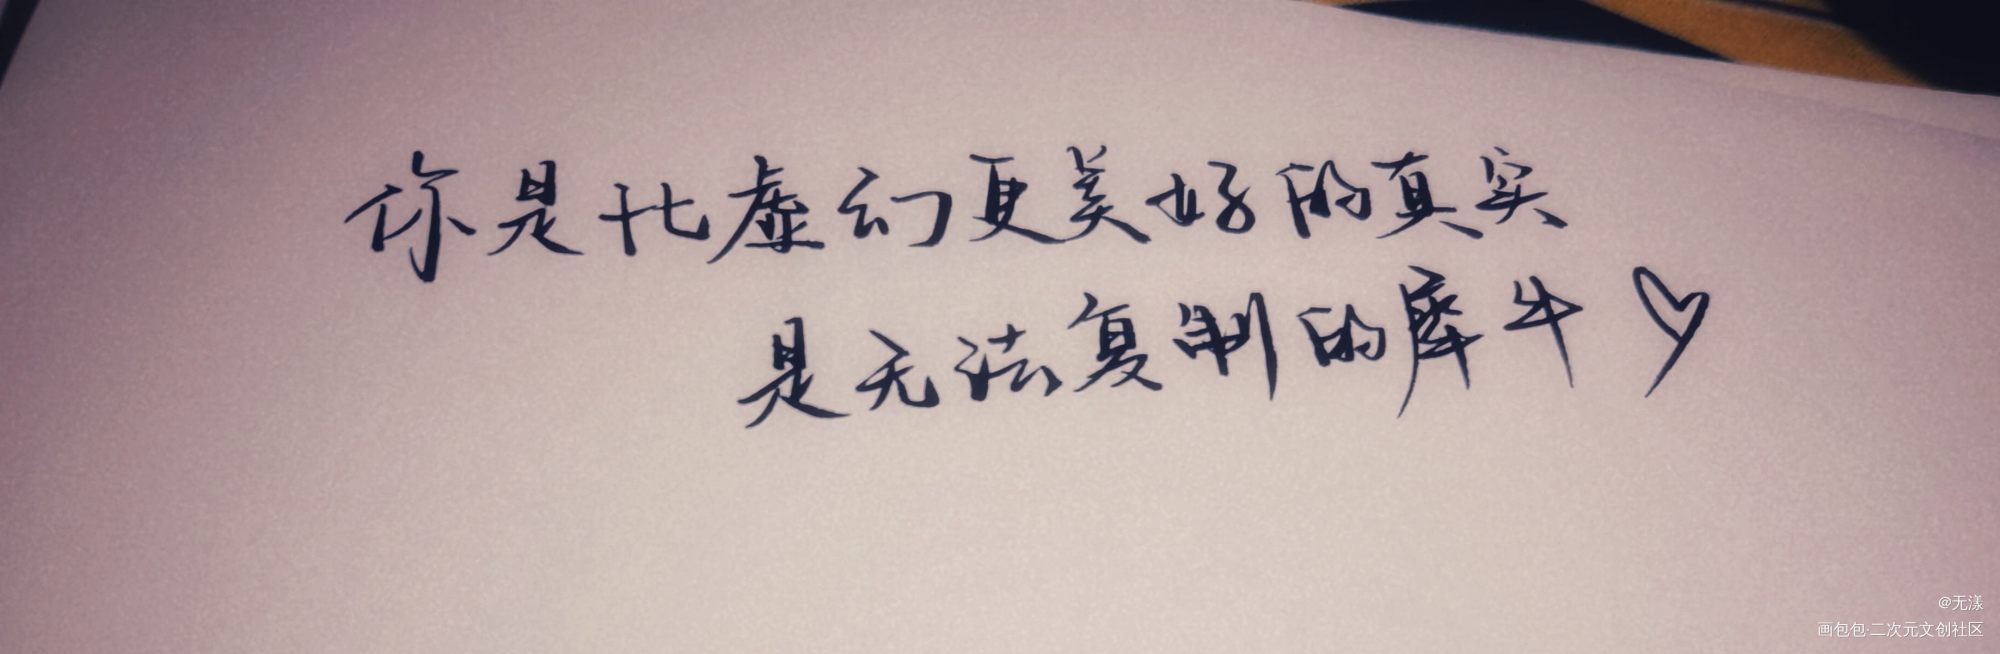 你是比虚幻更美好的真实
是无法复制的犀牛♡
@无漾
画包包·二次元文创社区